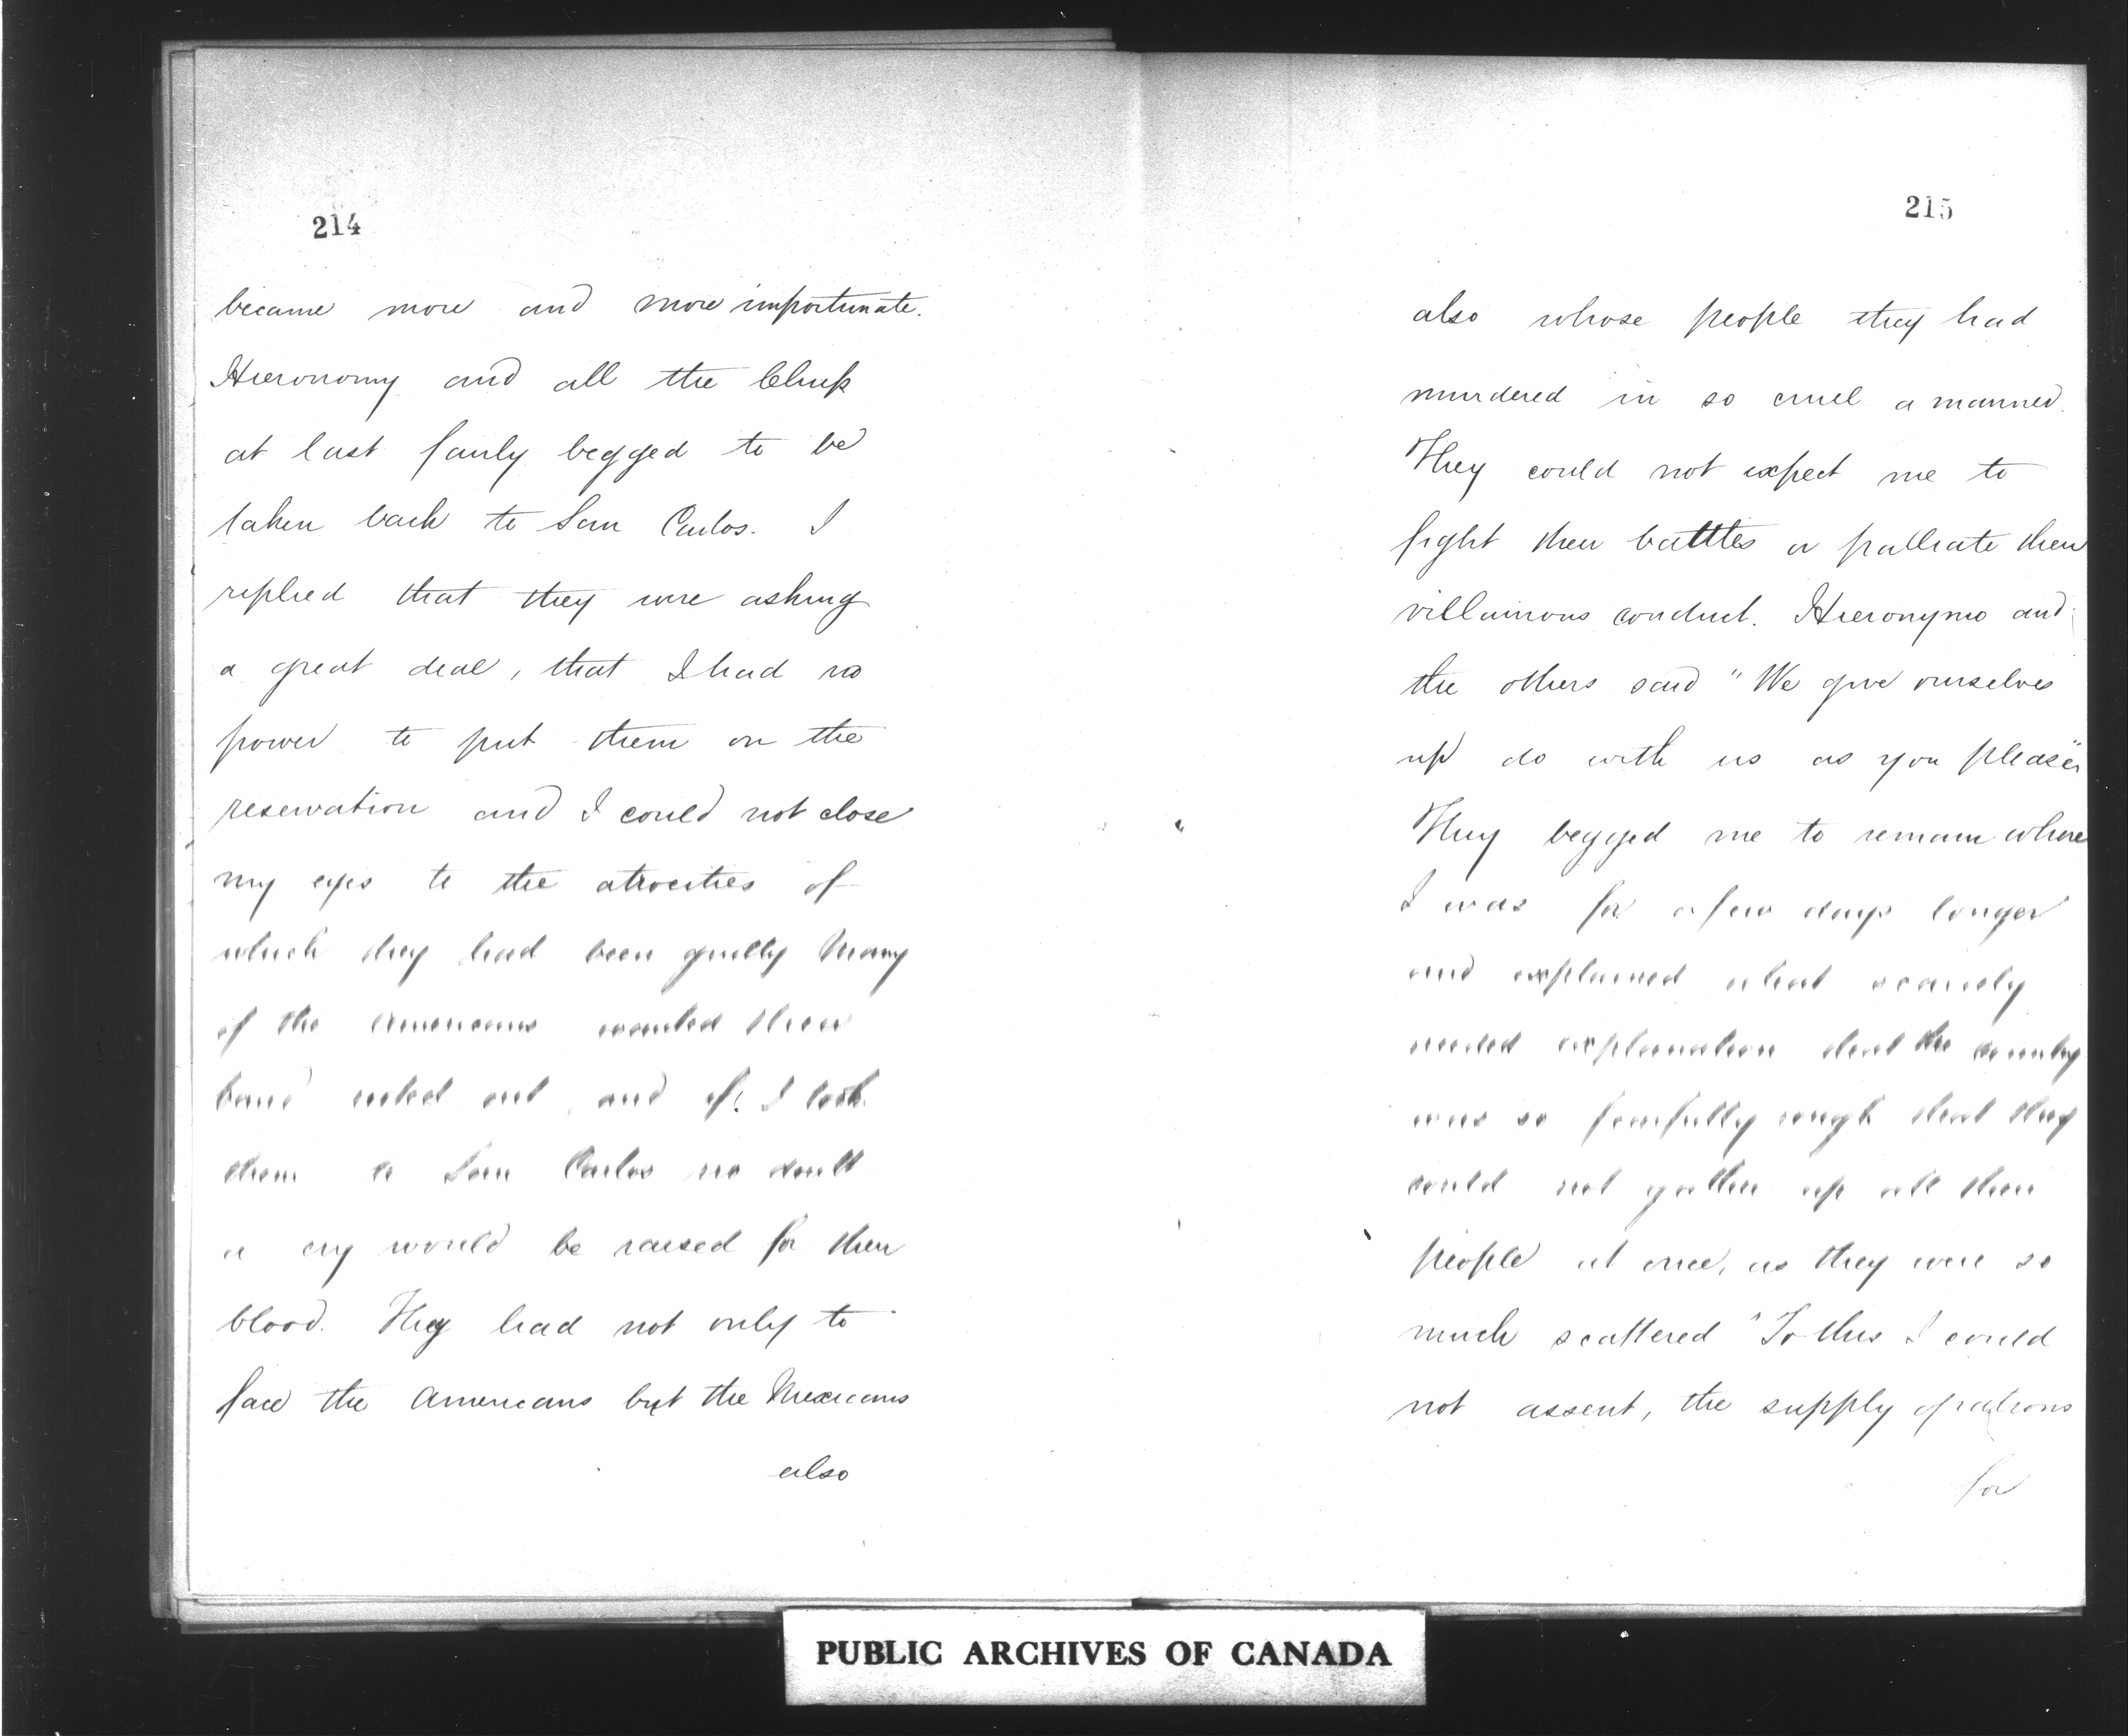 214
became more and more importunate.
Hieronomy and all the Chiefs
at last fairly begged to be
taken back to San Carlos. I
replied that they were asking
a great deal, that I had no
power to put them on the
reservation and I could not close
my eyes to the atrocities of
which they had been guilty Many
of the Americans wanted their
band wiped out, and if I took
them to San Carlos no doubt
a cry would be raised for their
blood. They had not only to
face the Americans but the Mexicans
also
215
also whose people they had
murdered in so cruel a manner.
They could not expect me to
fight their battles or palliate their
villainous conduct. Hieronymo and
the others said "We give ourselves
up do with us as you please"
They begged me to remain where
I was for a few days longer
and explained what scarcely
needed explanation that the country
was so fearfully rough that they
could not gather up all their
people at once, as they were so
much scattered" To this I could
not assent, the supply of rations
for
PUBLIC ARCHIVES OF CANADA